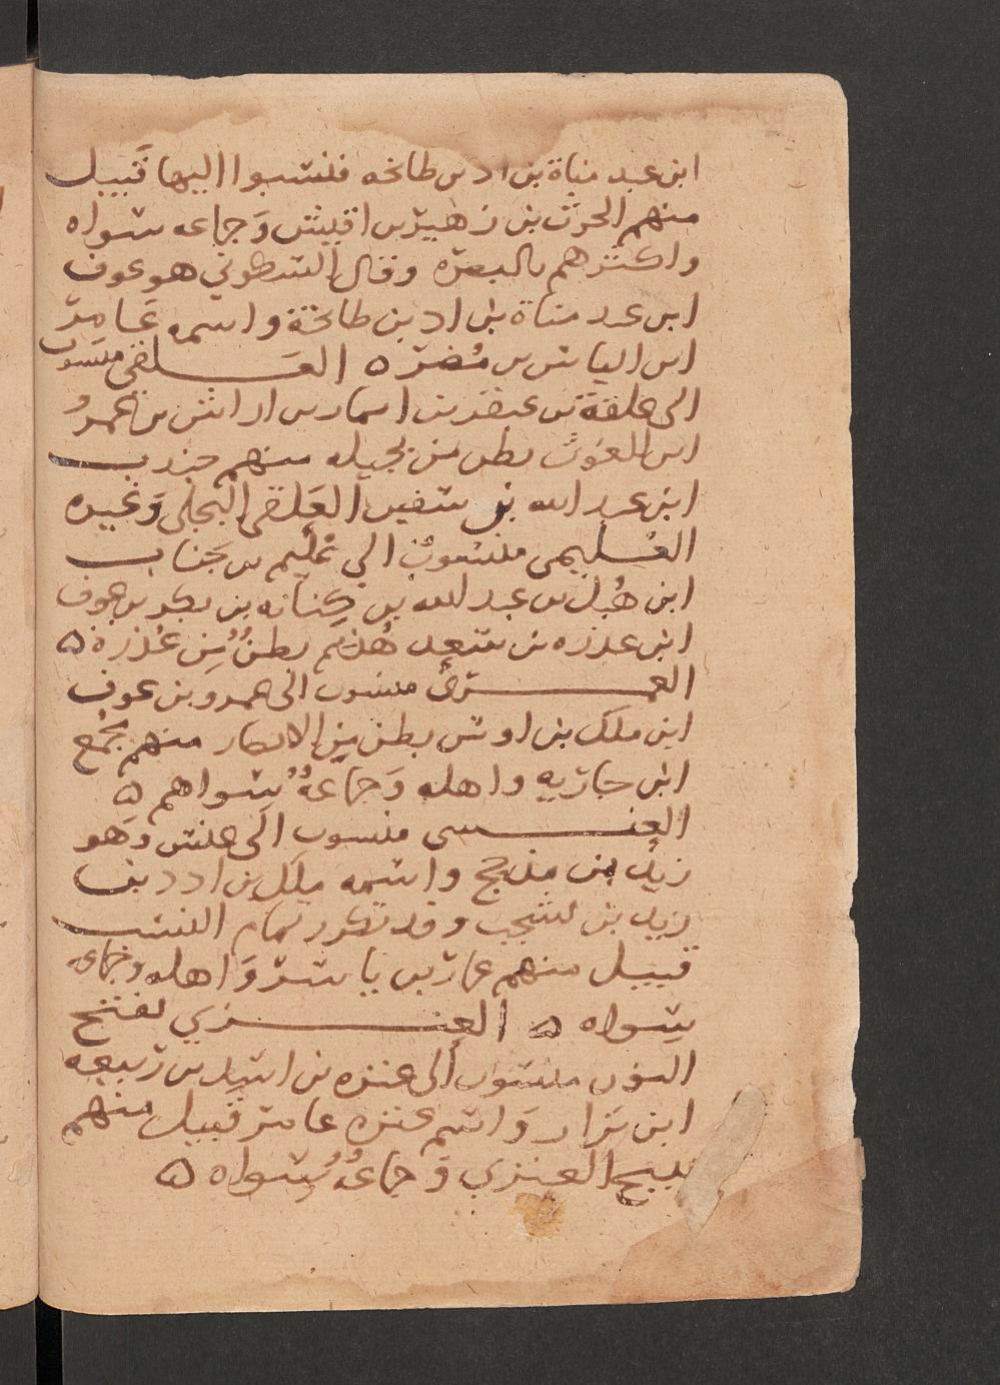 ابن عبد مناة بن اد بن طابخه فنسبوا اليها قبيل
منهم الحرث بن زهير بن اقيش وَجماعه سواه
واكثرهم بالبصره وقال الشطوني هو عوف
ابن عبد مناة بن اد بن طابخة واسمه عَامر
ابن الياس بن مُضر ه العَـلقى منسوب
الى علقة بن عبقر بن انمار بن اراش بن عمرو
ابن الغوث بطن من بجيله منهم جندب
ابن عبد الله بن سفين العَلقى البجلى وَغيره
العُـليمى منسوب الي عُليم بن جَناب
ابن هُبل بن عبد الله بن كِنانه بن بكر بن عوف
ابن عذره بن سعد هُذيم بطنٌ مِن عُذره ه
العـمـرى منسوب الى عمرو بن عوف
ابن ملك بن اوس بطن مِن الانصار منهم مجُمع
ابن جاريه واهله وَجماعةٌ سواهم ه
العنـسى منسوب الى عنس وَهو
زيد بن مذحج واسمه ملك بن ادد بن
زيد بن يشجب وقد تكرر تمام النسب
قبيل منهم عمار بن ياسر وَاهله وجماعه
سواه ه العنـزي بفتح
النون منسوب الى عنزه بن اسد بن ربيعه
ابن نزار وَاسم عنزه عامر قبيل منهم
نبيح العنزي وَجماعةٌ سواه ه